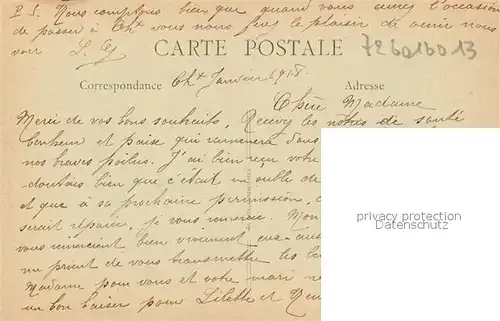 P.S. Nous comptons bien que quand vous aurez l'occasion
de passer à Cht vous nous ferez le plaisir de venir nous
voir
CARTE POSTALE
7260160 13
Correspondance
Adresse
Cht Janvier 1918.
Chère Madame
Merci de vos bons souhaits, Recevez les nôtres de santé
bonheur et paix qui ramenera dans
nos braves poilus. J'ai bien reçu votre
doutais bien que c'était un oubli de
et que à sa prochaine permission,
serait réparé, je vous remercie. Mon
vous remercient bien vivement eux-aus
me prient de vous transmettre les
Madame pour vous et votre mari
un bon baiser pour Lilette et
privacy protection
Datenschutz